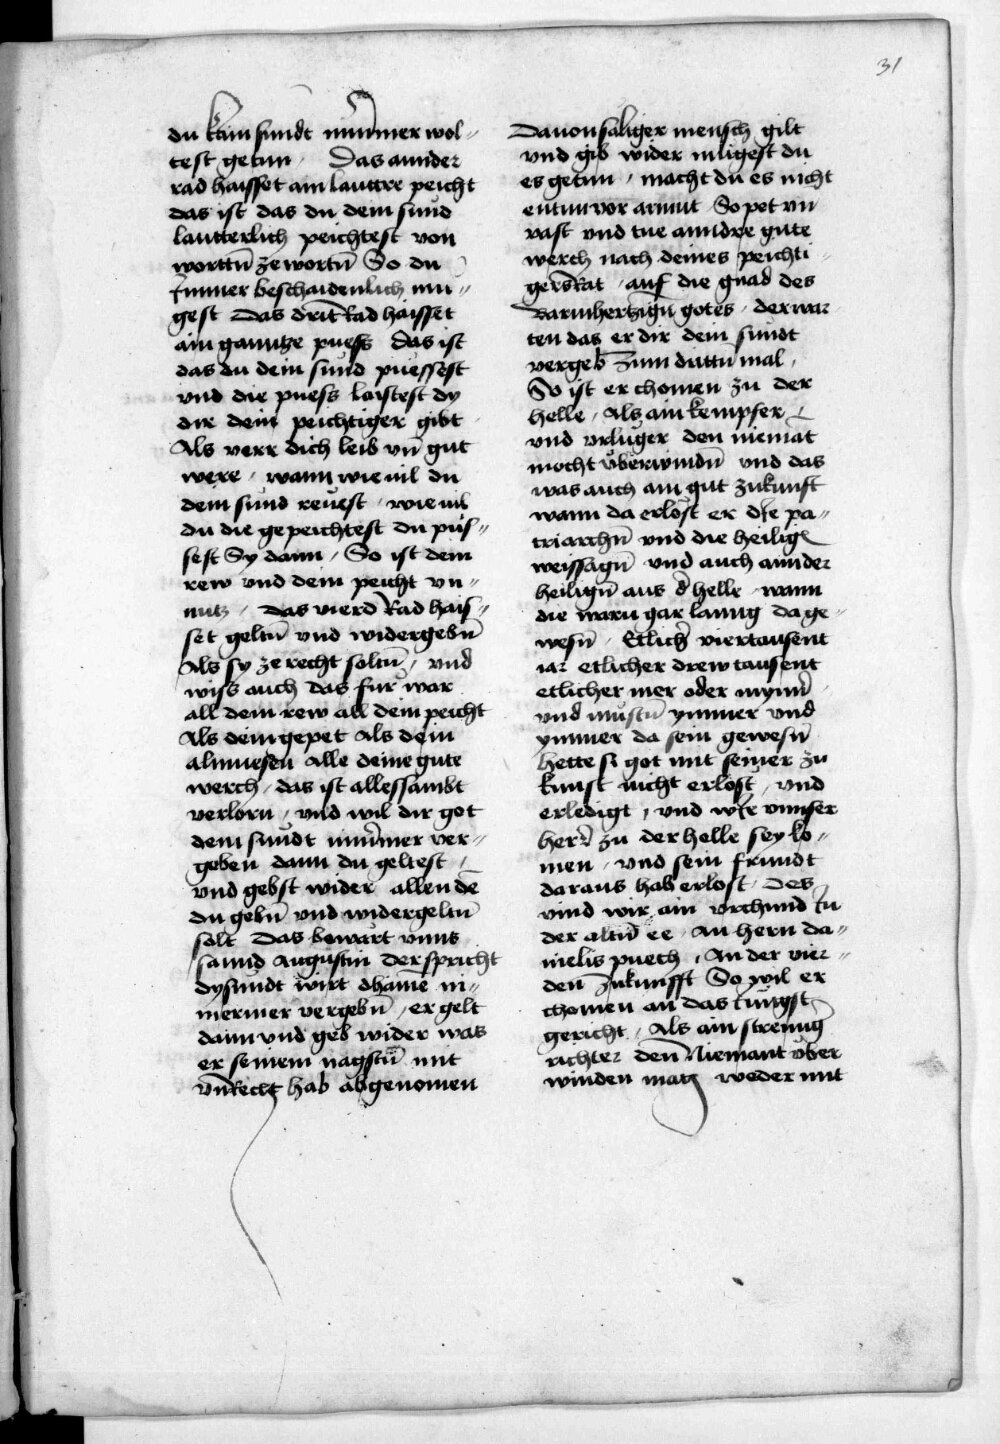 31
du kain sundt nim̄mer wol-
test getun, Das annder
rad haisset ain lauttre peicht
das ist das du dein sund
lautterlich peichtest von
worttn̄ ze wortn̄ So du
ymmer beschaidenlich mu-
gest Das dritt Rad haisset
ain ganntze puess Das ist
das du dein sund puessest
vnd die puess laistest dy
dir dein peichtiger gibt
Als verr dich leib vn̄ gut
were, wann wieuil du
dein sund reuest, wieuil
du die gepeichtest du pus-
sest Sy dann, So ist dein
rew vnd dein peicht vn-
nutz, Das vierd Rad hais-
set geltn̄ vnd widergebn̄
Als sy ze recht soltn̄, vnd
wiss auch das fur war
all dein rew all dein peicht
Als dein gepet als dein
almuesen alle deine gute
werch, das ist allessambt
verlorn, vnd wil dir got
dein sundt nim̄mer ver-
geben dann du geltest,
vnd gebst wider allen dē
du gebn̄ vnd widergeltn̄
solt Das bewart vnns
sannd augustin der spricht
dy sundt wirt dhaine ni-
mermer vergebn̄, er gelt
dann vnd geb wider was
er seinem nagstn̄ mit
vnRecht hab abgenomen
Dauon saliger mensch gilt
vnd gib wider mugest du
es getun, macht du es nicht
entun vor armut So pet vn
vast vnd tue anndre gute
werch nach deines peichti-
gers Rat, auf die gnad des
Barmhertzign̄ gotes, der war
ten das er dir dein sundt
vergeb Zum drittn mal,
So ist er chomen zu der
helle, Als ain kempfer
vnd vrluger den niemāt
mocht vberwindn̄ vnd das
was auch ain gut zukunft
wann da erlost er die pa-
triarchn̄ vnd die heilig
weissagn̄ vnd auch annder
heilign̄ aus d̄ helle, wann
die warn gar lanng da ge-
wesn̄, Etlich̄ viertausent
iar etlicher drew tausent
etlicher mer oder mynn̄
vnd mustn̄ ymmer vnd
ymmer da sein gewesn̄
hette si got mit seiner zu
kunst nicht erlost, vnd
erledigt, vnd wie vnnser
herr̄ zu der helle sey ko-
men, vnd sein frundt
daraus hab erlost, Des
vind wir ain vrchund in
der altn̄ ee, An hern da-
nielis puech, An der vier-
den zukunfft So wil er
chomen an das Jungst
gericht, Als ain strennḡ
richter den Niemant vber
winden mag weder mit